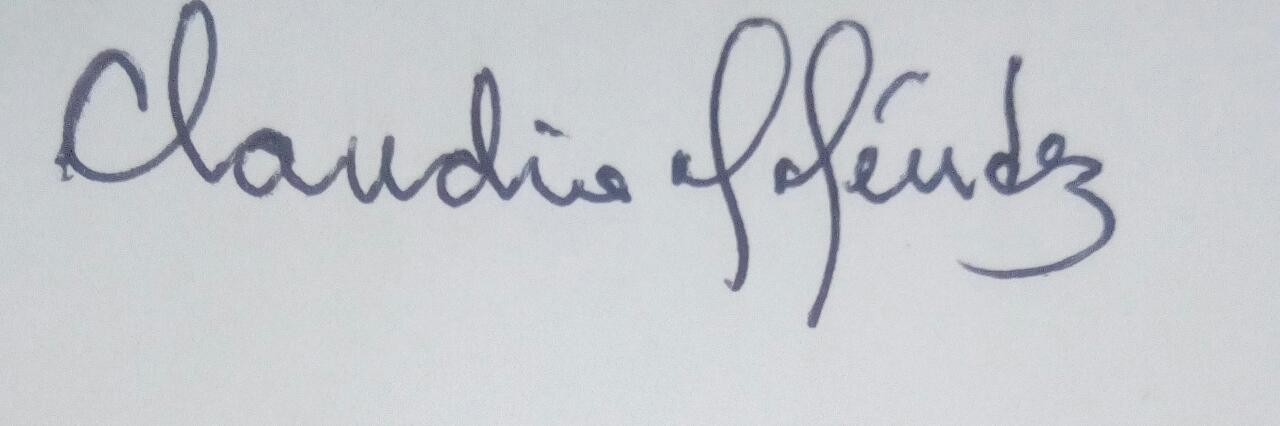 Claudia Méndez